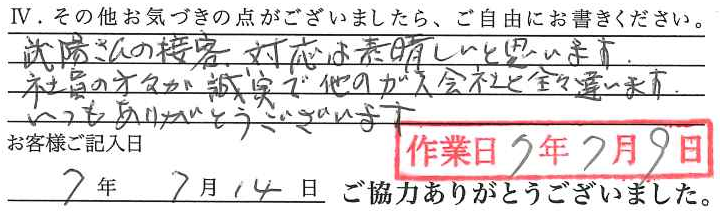 Ⅳ．その他お気づきの点がございましたら、ご自由にお書きください。
さんの接客、対応は素晴しいと思います。
社員の方々が誠実で他のガス会社と全々違います。
いつもありがとうございます
お客様ご記入日
作業日 7年 7月 9日
7年 7月 14日 ご協力ありがとうございました。